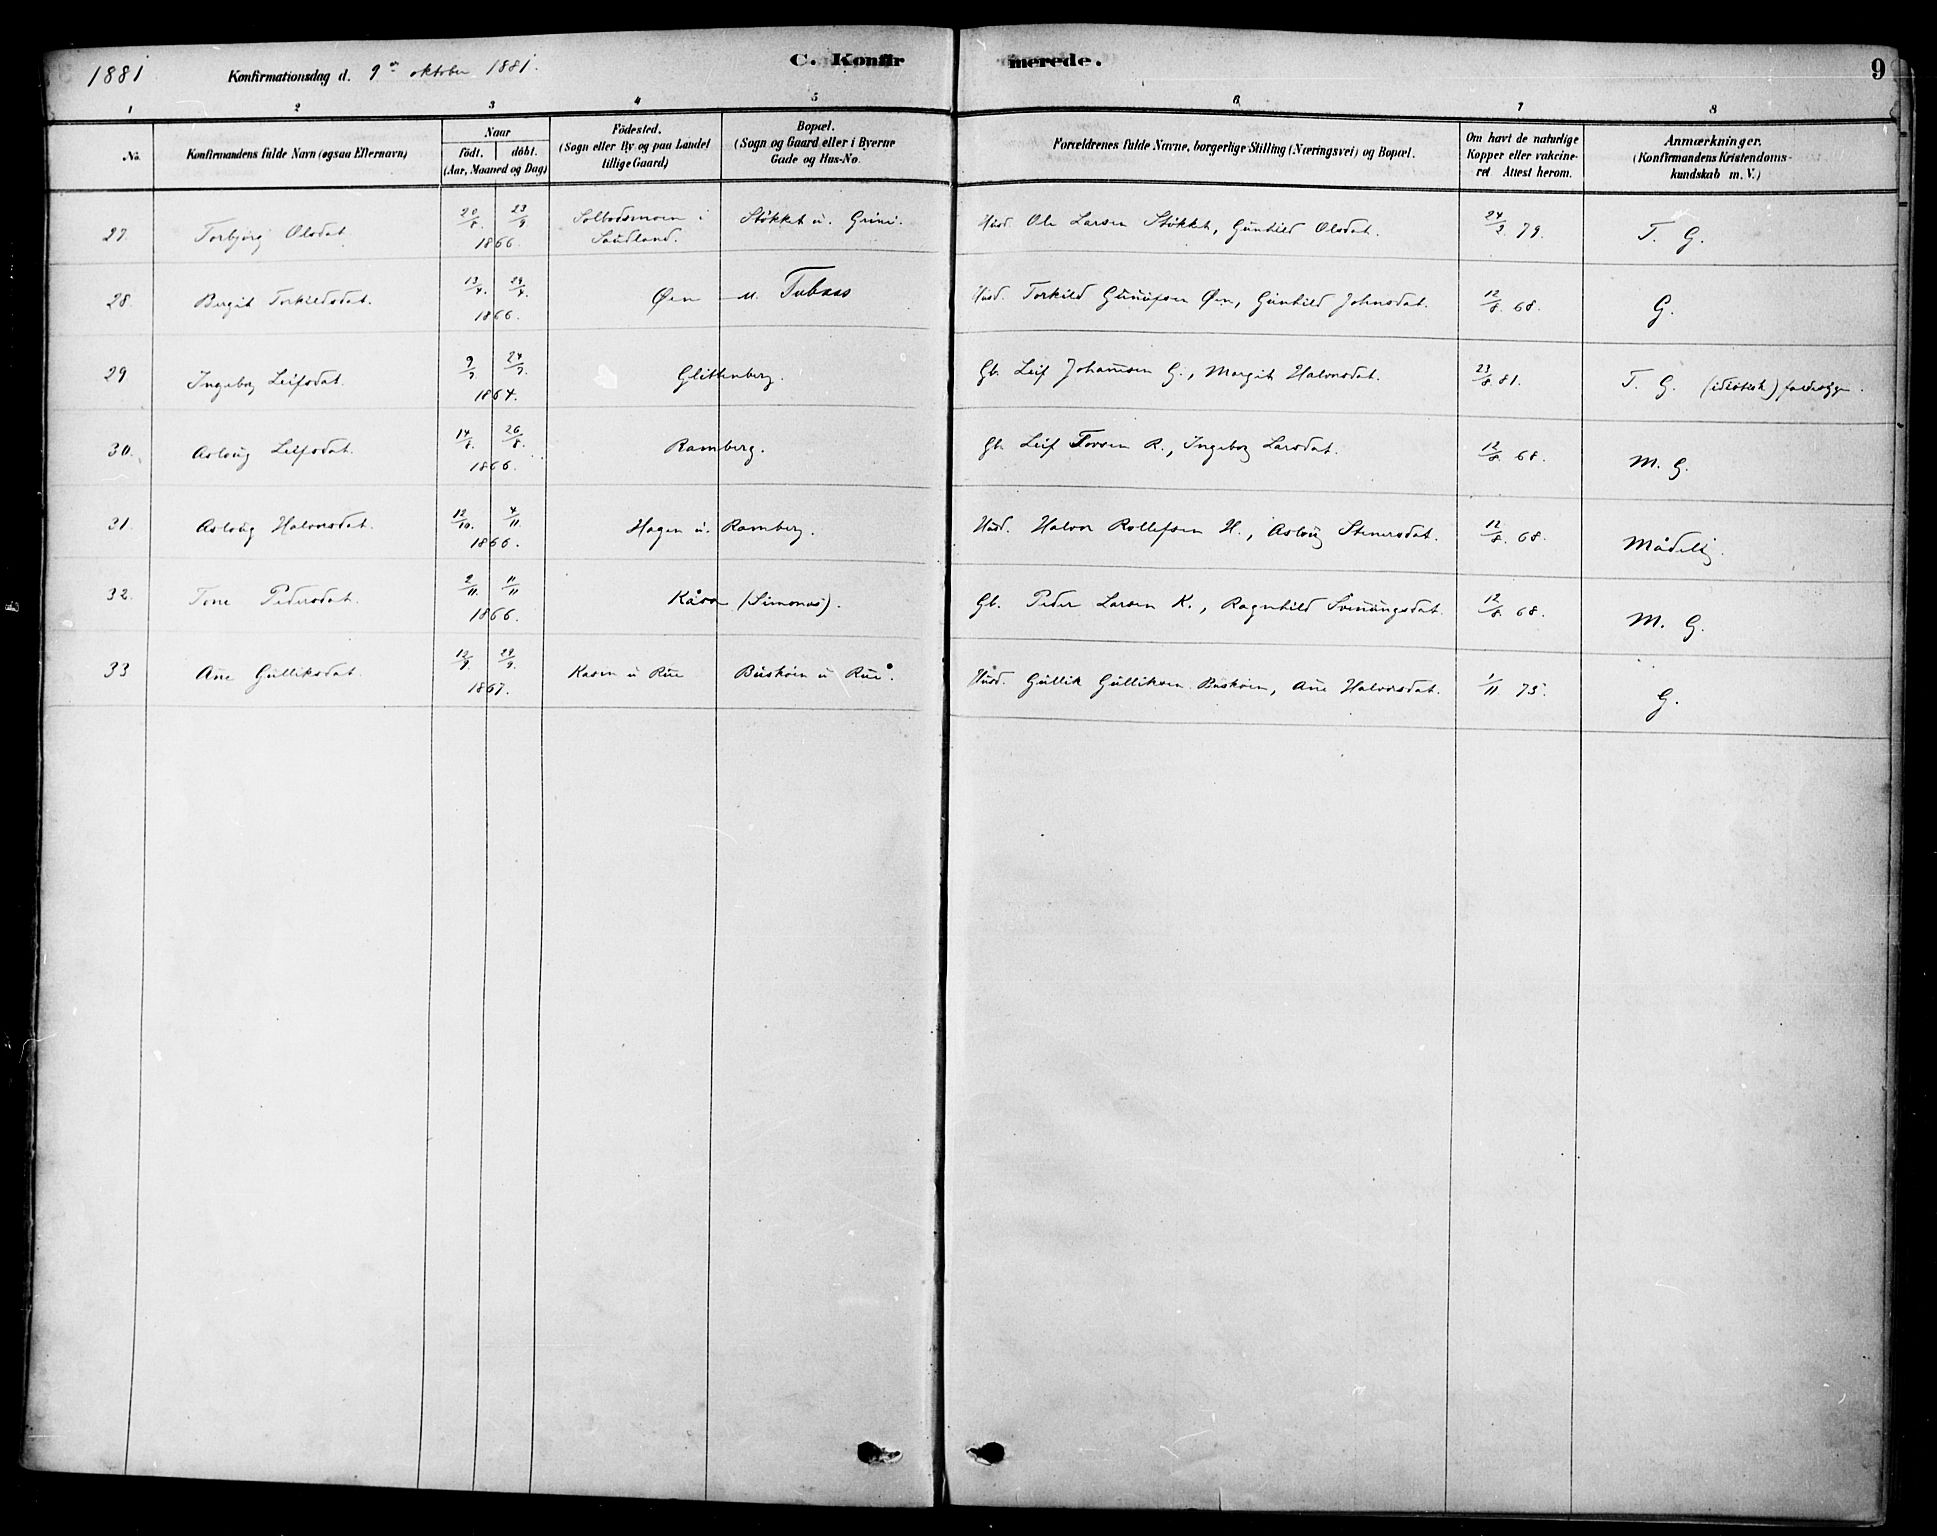 1881 Konfirmationsdag d. 9de oktober 1881. C. Konfir merede. 9
1 2 3 4 5 6 7 8
No. Konfirmandens fulde Navn (ogsaa Efternavn) Naar født. døbt. (Aar, Maaned og Dag) Födested. (Sogn eller By og paa Landet tillige Gaard) Bopæl. (Sogn og Gaard eller i Byerne Gade og Hus-No Forældrenes fulde Navne, borgerlige Stilling (Næringsvei) og Bopæl. Om havt de naturlige Kopper eller vakcineret Attest herom. Anmærkninger. (Konfirmandens Kristendomskundskab m. V.)
27. Torbjørg Olsdat. 20/8. 23/9 1866. i Saudland. Støkket u. Grini. Husd. Ole Larsen Støkket, Gunhild Olsdat. 24/9. 79. T. G.
28 Birgit Torkildsdat. 13/4. 29/4. 1866. Øen u. Tubaas Husd. Torkild Gunufsen Øen, Gunhild Johnsdat. 12/8. 68. G.
29 Ingeborg Leifsdat. 1864. Glittenberg. Gb. Leif Johannsen G., Margit Halvorsdat. 23/8 81. T. G. (idiotisk)
30. Aslaug Leifsdat. 14/8. 26/8. 1866. Ramberg. Gb. Leif Torsen R., Ingeborg Larsdat. 12/8. 68. M. G.
31. Aslaug Halvorsdat. 12/10. 4/11. 1866. Hagen u. Ramberg. Husd. Halvor Rollefsen H., Aslaug Stenersdat. 12/8. 68. Mådelig.
32. Tone Pedersdat. 2/11. 11/11 1866. Kåsa (Simonas). Gb. Peder Larsen K., Ragnhild Svenungsdat. 12/8. 68. M. G.
33 Ane Gulliksdat. 12/9. 29/9. 1867. Kasen u Rue Buskåen u Rue. Husd. Gullik Gulliksen Buskåen, Ane Halvorsdat. 1/11 75. G.